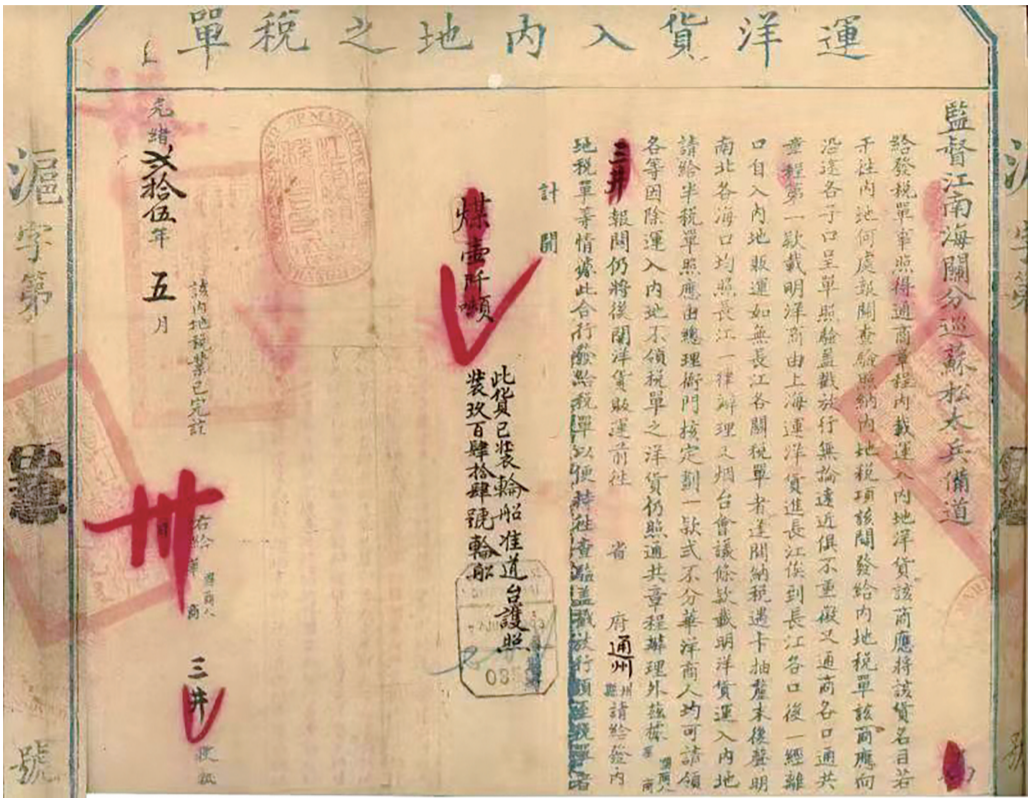 運洋貨入內地之稅單
監督江南海關分巡蘇松太兵備道
給發稅單事照得通商章程內載運入內地洋貨該商應將該貨名目若
干往內地何處報關查驗照納內地稅項該關發給內地稅單該商應向
沿途各子口呈單照驗蓋戳放行無論遠近俱不重徵又通商各口通共
章程第一欵載明洋商由上海運洋貨進長江俟到長江各口後一經離
口自入內地販運如無長江各關稅單者逢關納稅遇卡抽釐末後聲明
南北各海口均照長江一律辦理又烟台會議條款載明洋貨運入內地
請給半稅單照應由總理衙門核定劃一欵式不分華洋商人均可請領
各等因除運入內地不領稅單之洋貨仍照通共章程辦理外茲據
三井報關仍將後開洋貨販運前往 省 府 通州 請給發內
地稅單等情據此合行發給稅單以便持往查驗蓋戳放行須至稅單者
計開
煤壹阡噸
此貨已裝輪船准道台護照
裝玖百肆拾肆號輪船
該內地稅業已完訖
右給 商 三井 收執
光緒貳拾伍年 五月
滬字第 號
滬字第 號